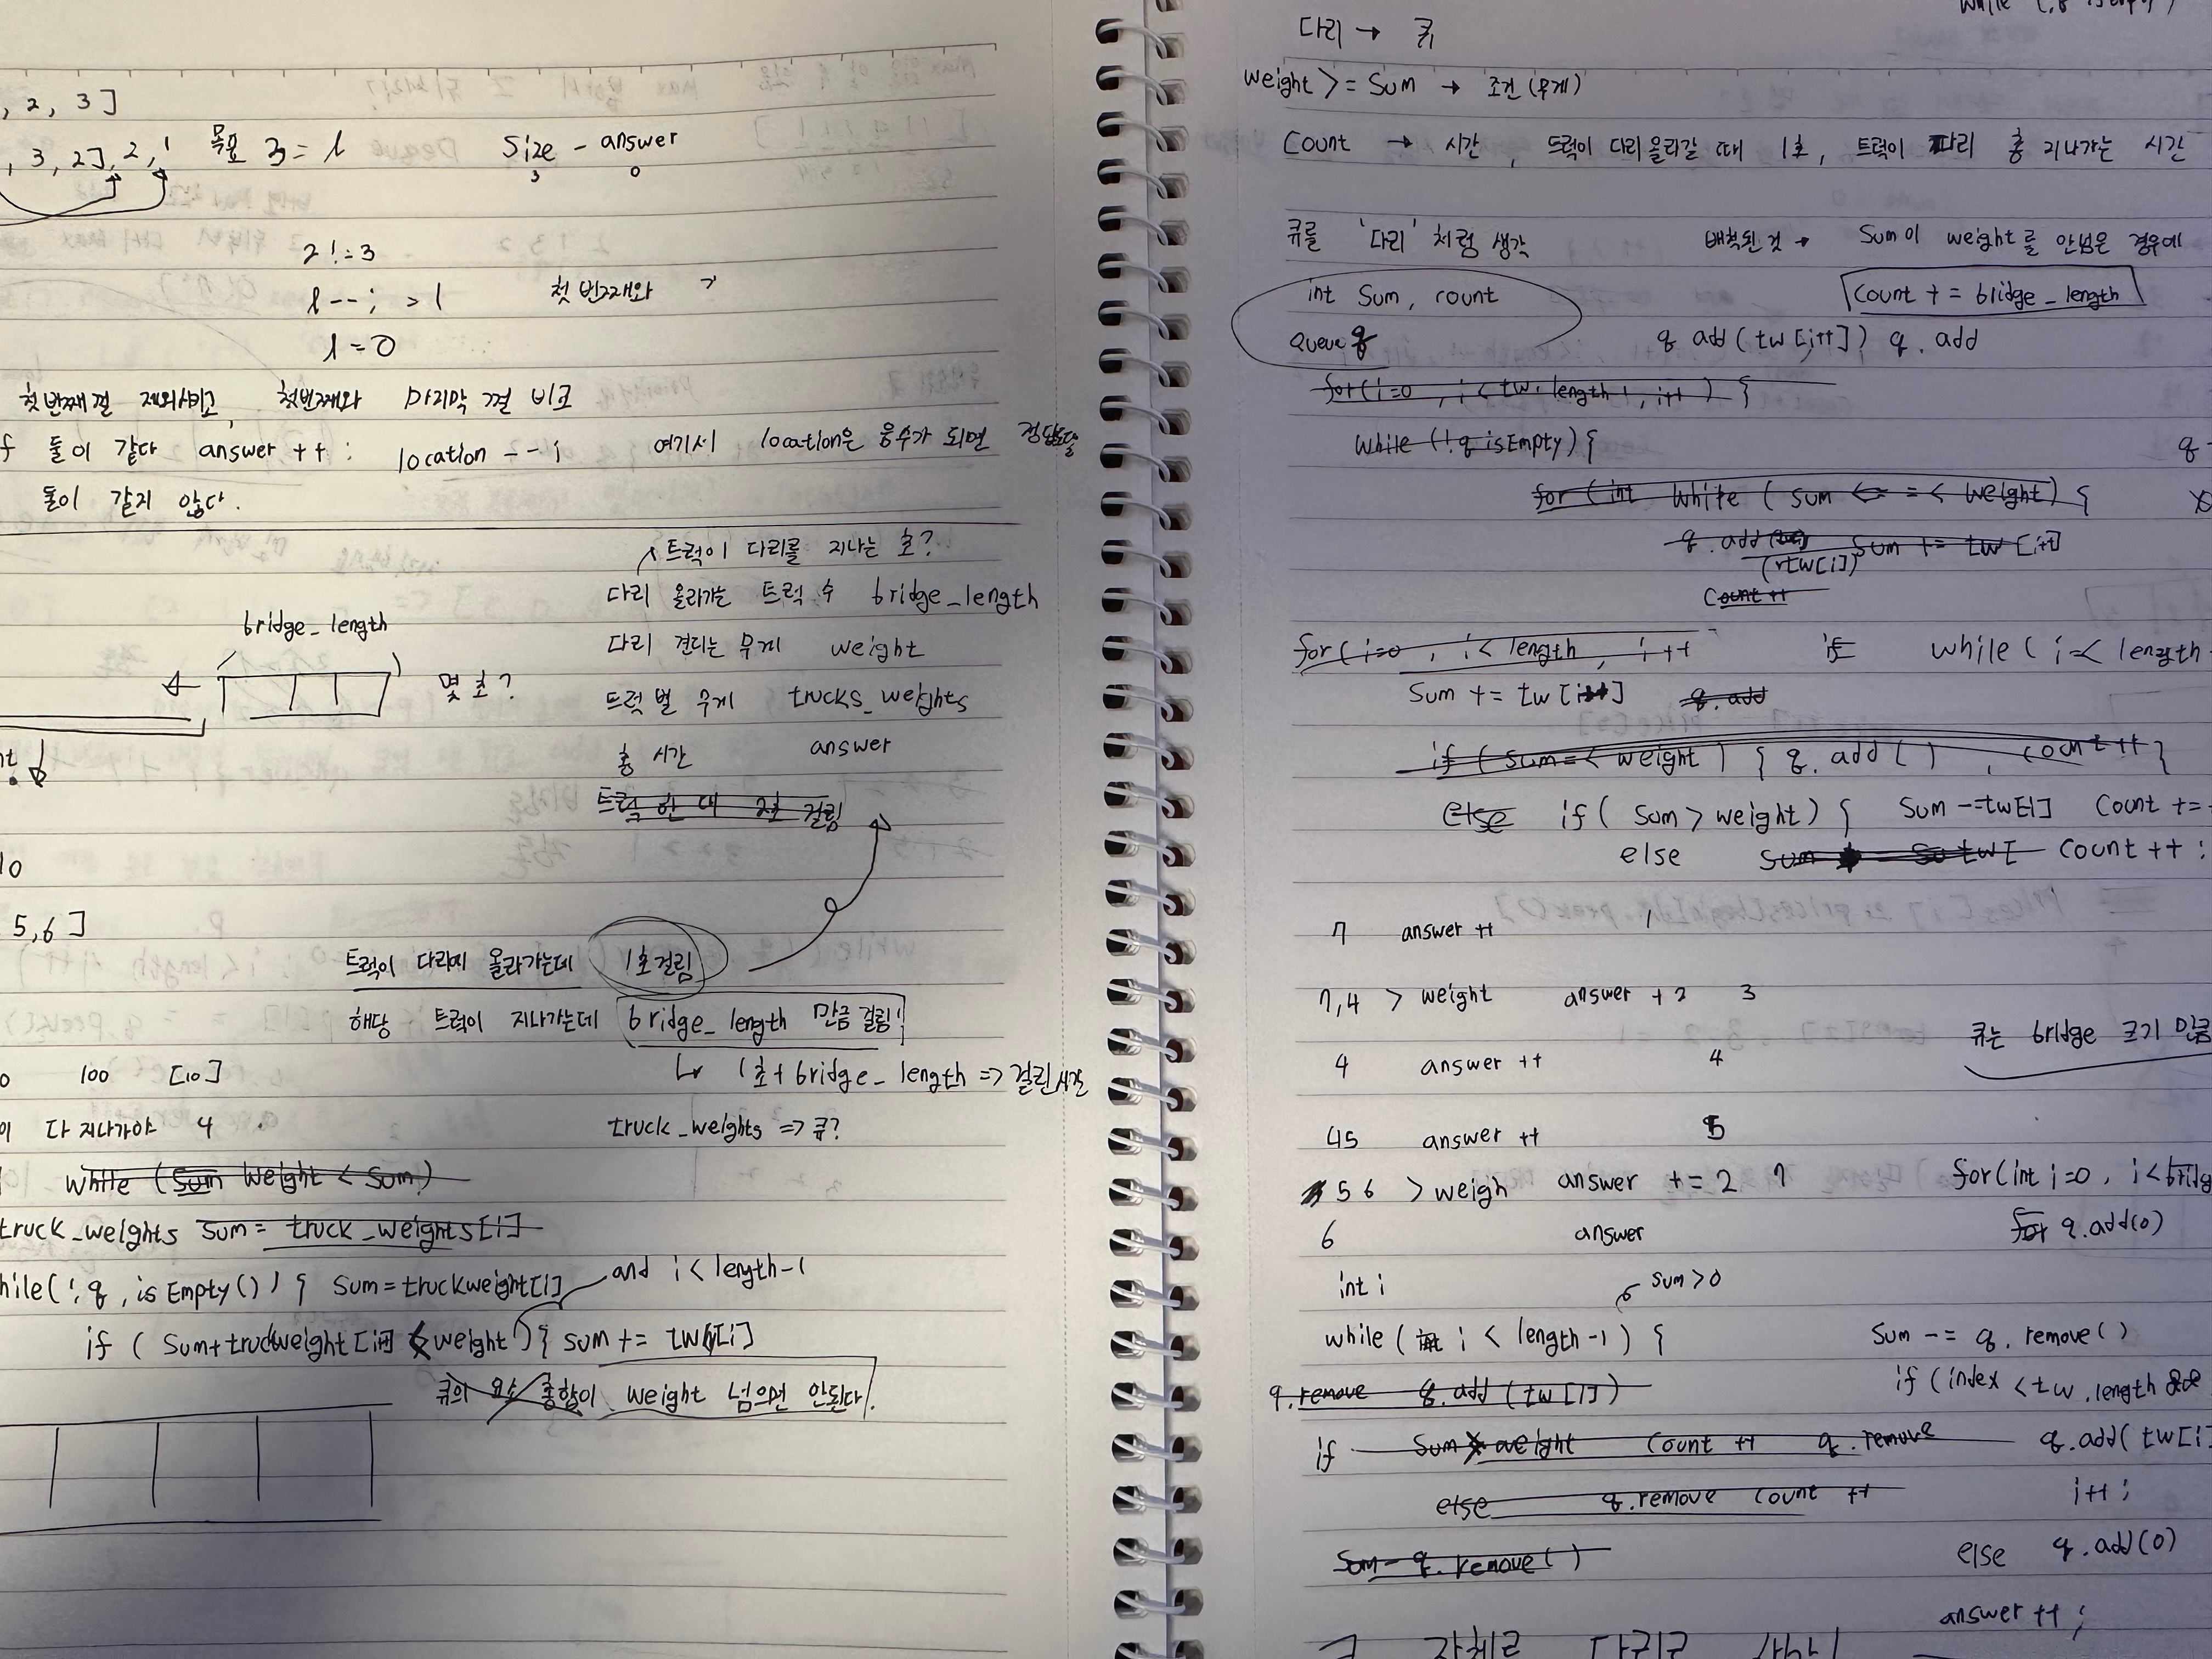 , 2, 3]
, 3, 2], 2, 1 목표 3 = l Size - answer
3 0
2 != 3
l--; > l 첫번째와
l = 0
첫번째껄 제외시키고, 첫번째와 마지막 껄 비교
f 둘이 같다 answer ++; location --; 여기서 location은 음수가 되면 정답도출
둘이 같지 않다.
트럭이 다리를 지나는 초?
다리 올라가는 트럭 수 bridge_length
bridge_length
다리 견디는 무게 weight
몇 초?
트럭 별 무게 trucks_weights
총 시간 answer
트럭 한 대 2초 걸림
10
5,6]
트럭이 다리에 올라가는데 1초걸림
해당 트럭이 지나가는데 bridge_length 만큼 걸림!
↳ 1초 + bridge_length => 걸린시간
0 100 [10]
이 다 지나가야 4
truck_weights => 큐?
while (Sum weight < Sum)
truck_weights Sum = truck_weights[i]
hile(!q, isEmpty()) { Sum = truckweight[i] and i < length-1
if ( Sum + truckweight[i+1] < weight ) { sum += tw[i]
큐의 요소 총합이 weight 넘으면 안된다.
다리 → 큐
weight >= Sum → 조건 (무게)
Count → 시간, 트럭이 다리 올라갈 때 1초, 트럭이 다리 총 지나가는 시간
큐를 '다리' 처럼 생각 배척된 것 → Sum이 weight를 안넘은 경우에
int Sum, count Count += bridge_length
Queue q q add(tw[i++]) q. add
for(i=0, i < tw. length, i++) {
while (!q isEmpty) { q
for (int while ( sum <= =< weight) {
q. add Sum += tw [i+1]
(tw[i])
Count ++
for (i=0, i < length, i++ if while ( i =< length
Sum += tw [i++] q. add
if ( sum =< weight ) { q. add ( ) , count ++ {
else if ( Sum > weight) { Sum -= tw[i] Count +=
else Sum tw[ Count ++ ;
7 answer ++ 1
7,4 > weight answer + 2 3
큐는 bridge 크기 만큼
4 answer ++ 4
45 answer ++ 5
5 6 > weigh answer += 2 7 for(int i=0, i < bridg
6 answer for q.add(0)
int i sum > 0
while ( int i < length -1 ) { Sum -= q. remove ( )
q. remove q. add (tw [i]) if (index < tw. length &&
if Sum weight Count ++ q. remove q. add( tw[i]
else q. remove count ++ i++ ;
Sum - q. remove ( ) else q. add(0)
answer ++ ;